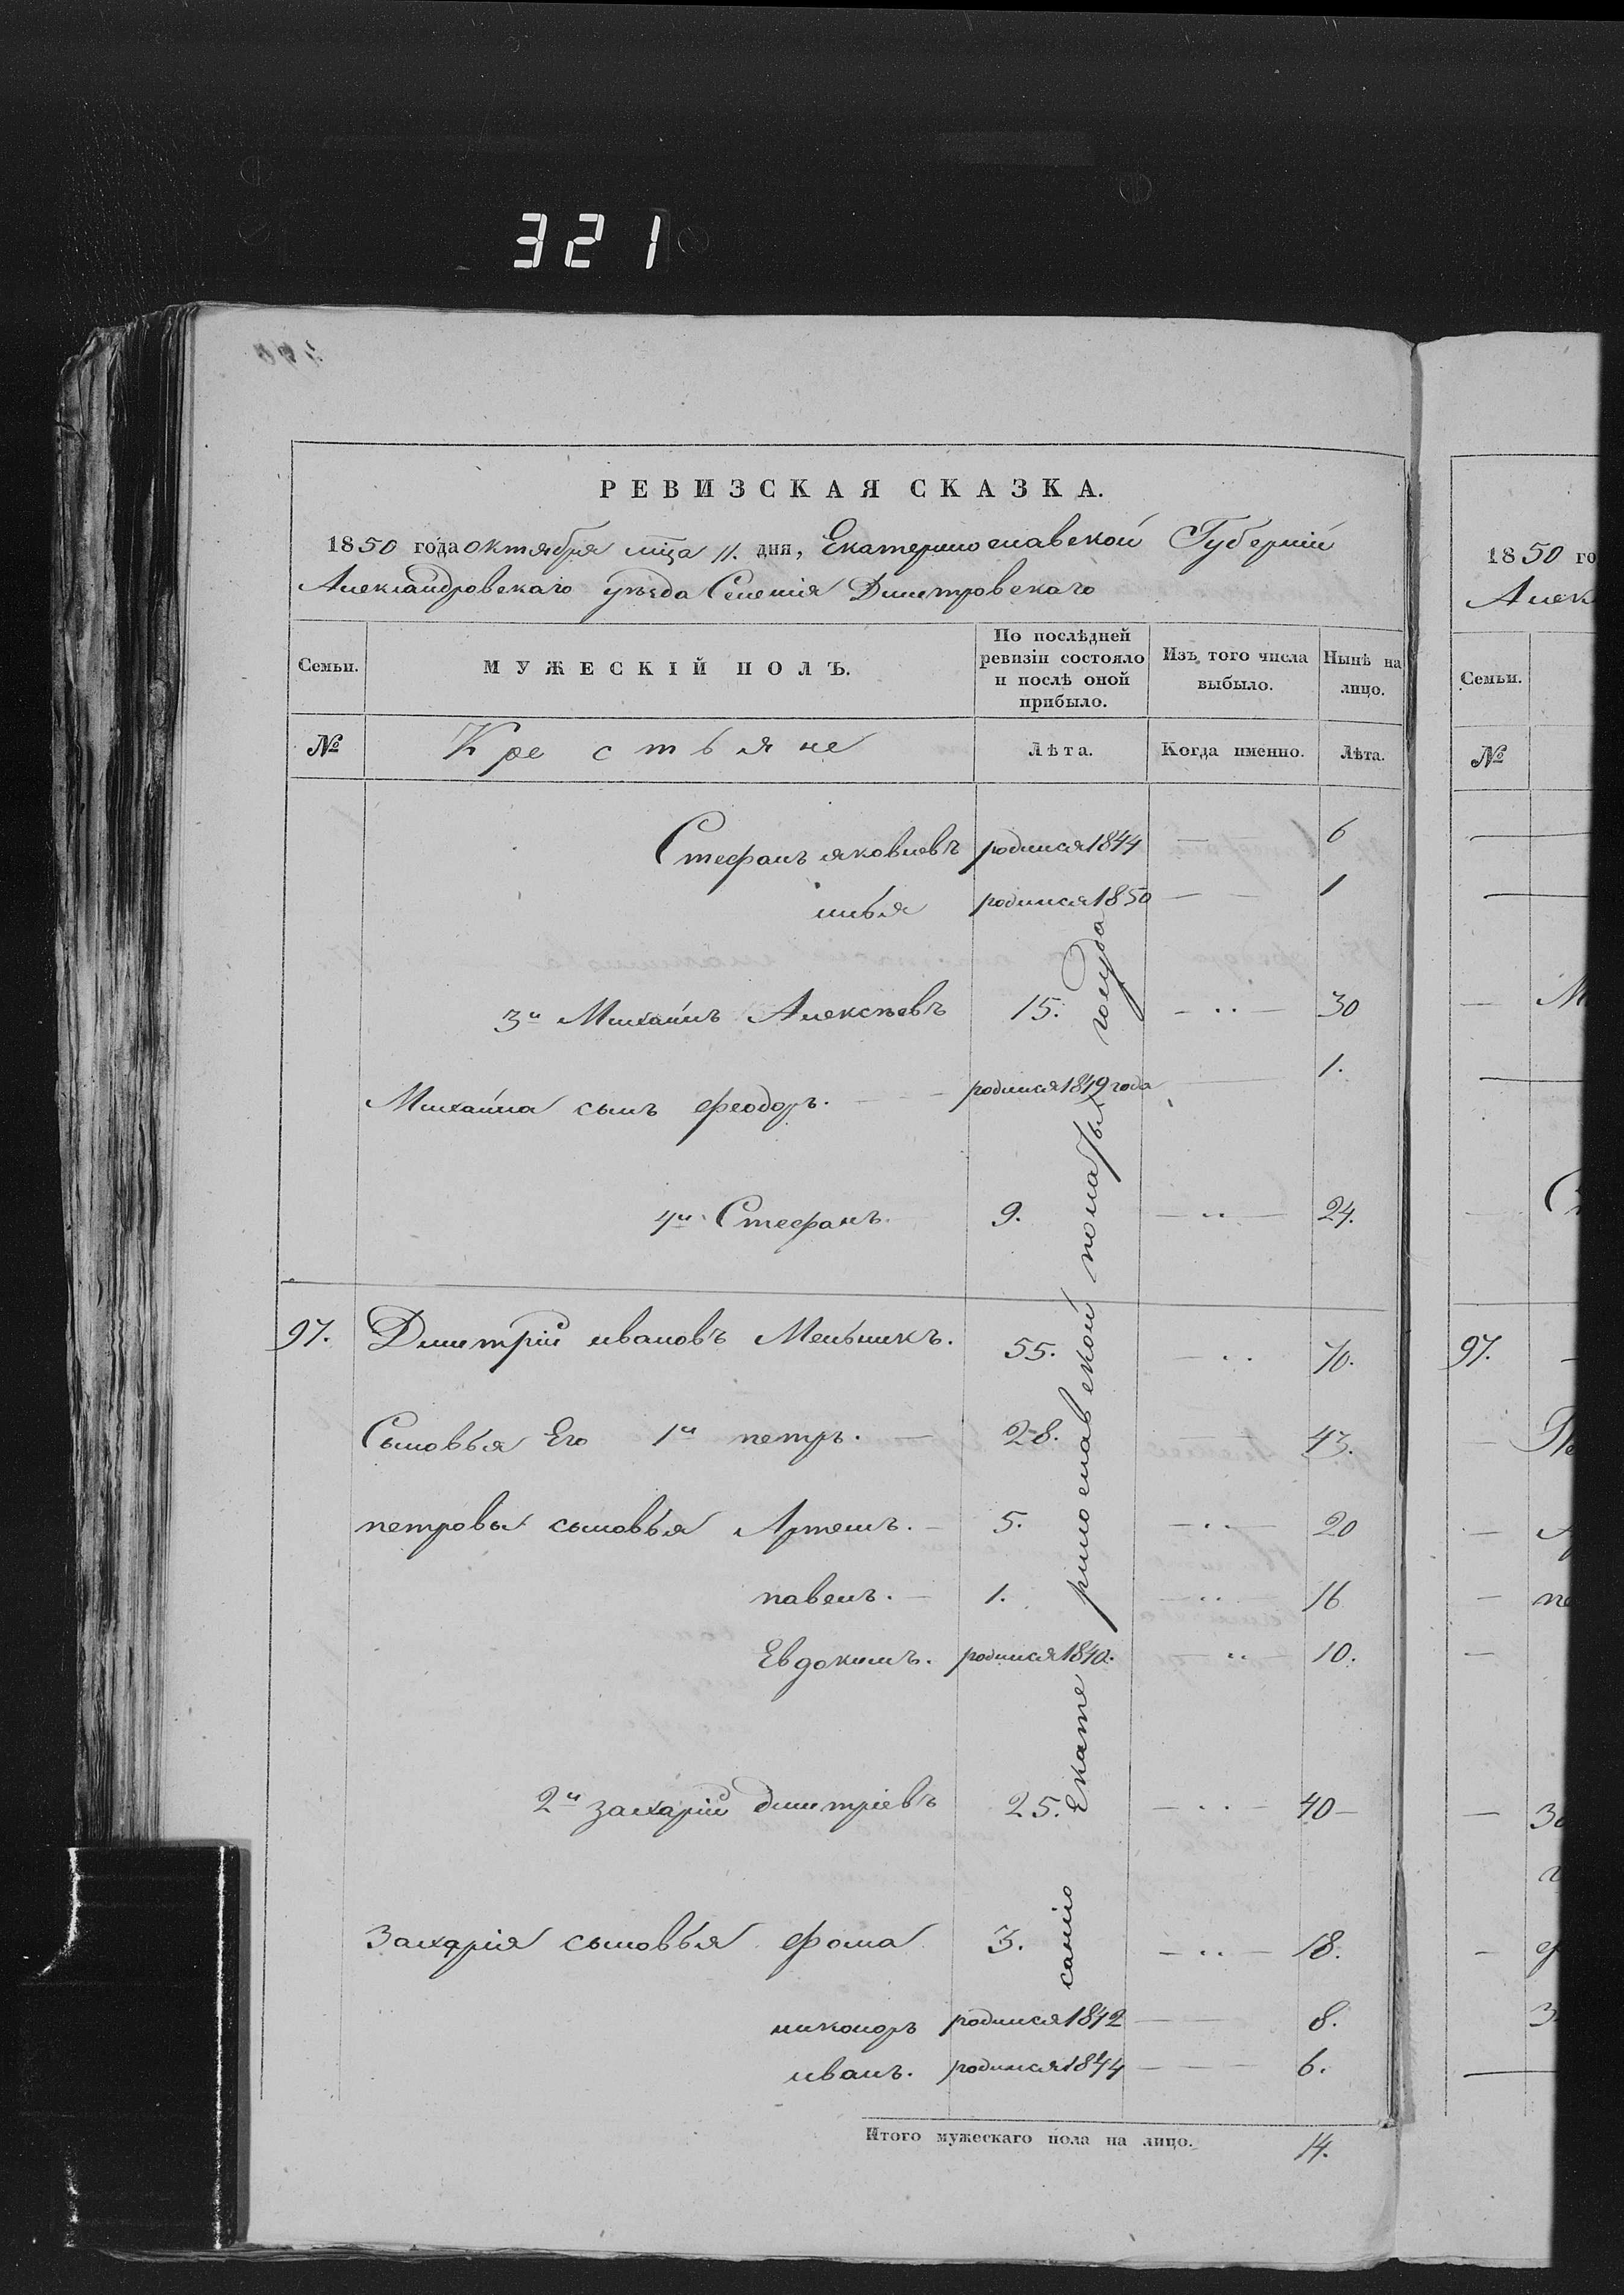 321
РЕВИЗСКАЯ СКАЗКА.
1850 года октября мца 11. дня, Екатеринославской Губерніи
Александровскаго уѣзда Селенія Дмитровскаго
Семьи. МУЖЕСКІЙ ПОЛЪ. По послѣдней ревизіи состояло и послѣ оной прибыло. Изъ того числа выбыло. Нынѣ на лицо.
№ Крестьяне Лѣта. Когда именно. Лѣта.
Стефанъ яковлевъ родился 1844 — 6
илья родился 1850 — 1
3й Михаилъ Алексѣевъ 15. — 30
Михаила сынъ феодоръ. — родился 1849 года — 1.
4й Стефанъ. 9. — 24.
97. Дмитрій ивановъ Мельникъ. 55. — 70.
Сыновья Его 1й петръ. — 28. 43.
петровы сыновья Артемъ. — 5. — 20
павелъ. — 1. — 16
Евдокимъ. родился 1840. 10.
2й захарій дмитріевъ 25. — 40 —
Захарія сыновья фома 3. — 18.
никоноръ родился 1842 — 8.
иванъ. родился 1844 — 6.
Итого мужескаго пола на лицо. 14.
Екатеринославской палаты
1850 го
Алек
Семьи.
№
97.